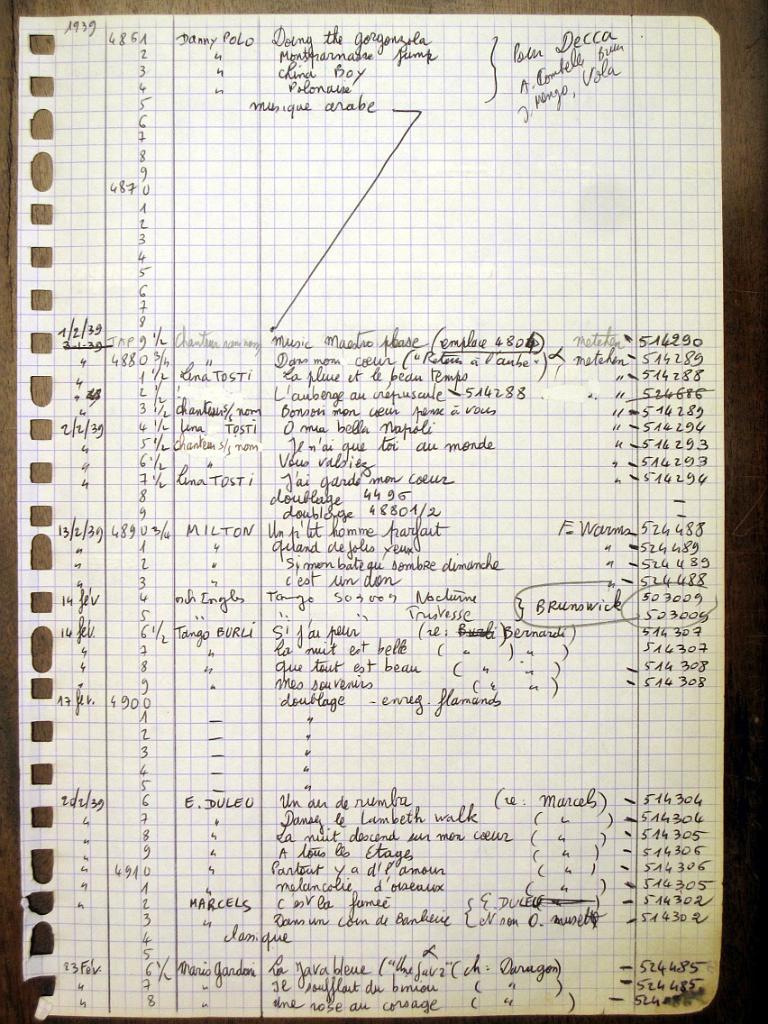 1939
4861 Danny POLO Doing the gorgonzola } Pour Decca
2 " Montparnasse Jump A. Combelle
3 " China Boy Vola
4 " Polonaise
5 musique arabe
6
7
8
9
4870
1
2
3
4
5
6
7
8
1/2/39 9 1/2 Chanteur sans nom Music Maestro please (emplace 480 ) metehen - 514290
" 4880 3/4 " Dans mon coeur ("Retour à l'aube") metehen - 514289
" 1 1/2 Lina TOSTI La pluie et le beau temps " - 514288
" 2 1/2 L'auberge au crépuscule - 514288 " - 524686
" 3 1/2 chanteur s/s nom Bonsoir mon coeur pense à vous " - 514289
2/2/39 4 1/2 Lina TOSTI O mia bella Napoli " - 514294
" 5 1/2 chanteur s/s nom Je n'ai que toi au monde " - 514293
" 6 1/2 " Vous valsiez " - 514293
" 7 1/2 Lina TOSTI J'ai gardé mon coeur " - 514294
8 doublage 4496 -
9 doublage 48801/2 -
13/2/39 4890 3/4 MILTON Un p'tit homme parfait F. Warms - 524488
" 1 " Quand de jolis yeux " - 524489
" 2 " Si mon bateau sombre dimanche " - 524489
" 3 " C'est un don " - 524488
14 fév 4 Tango 503009 Nocturne } BRUNSWICK 503009
5 " " Tristesse 503009
14 fév. 6 1/2 Tango BURLI Si j'ai peur (re: Burli Bernardi) 514307
" 7 " La nuit est belle ( " ) " ) 514307
" 8 " Que tout est beau ( " " ) - 514308
" 9 " Mes souvenirs ( " " ) - 514308
17 fév. 4900 doublage - enreg. flamands
1 — "
2 — "
3 — "
4 — "
5 — "
20/2/39 6 E. DULEU Un air de rumba (re: Marcels) - 514304
" 7 " Dansez le Lambeth walk ( " ) - 514304
" 8 " La nuit descend sur mon coeur ( " ) - 514305
" 9 " A tous les Etages ( " ) - 514306
" 4910 " Partout y a d'l'amour ( " ) - 514306
" 1 " melancolie d'oiseaux ( " ) - 514305
" 2 MARCELS C'est la fumée { E. DULEU - 514302
3 " Dans un coin de Banlieue { et son O. musette - 514302
4 classique
5
23 Fév. 6 1/2 Mario Gardoni La Java bleue ( (ch: Daragon) - 524485
" 7 " Je soufflait du biniou ( " ) - 524485
" 8 " une rose au corsage ( " ) - 524